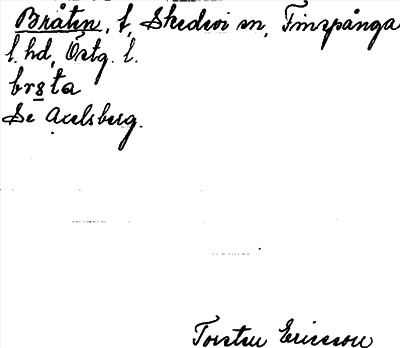 Bråten, t, Skedevi sn, Finspånga
l. hd, Östg. l.
brsta
Se Axelsberg.
Torsten Ericsson